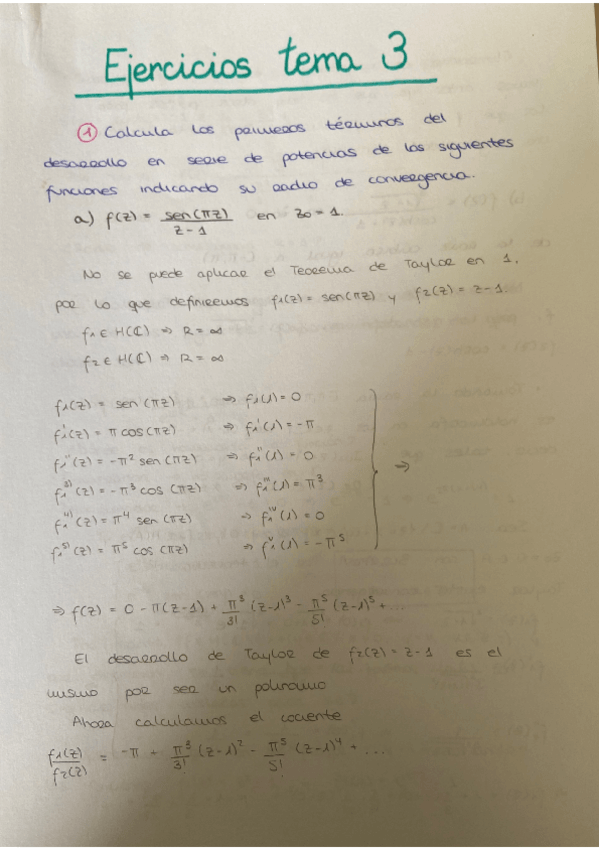 Ejercicios tema 3
① Calcula los primeros términos del
desarrollo en serie de potencias de las siguientes
funciones indicando su radio de convergencia.
a) f(z) = sen(πz)/(z-1) en z₀ = 1.
No se puede aplicar el Teorema de Taylor en 1,
por lo que definiremos f₁(z) = sen(πz) y f₂(z) = z-1.
f₁ ∈ H(ℂ) ⇒ R = ∞
f₂ ∈ H(ℂ) ⇒ R = ∞
f₁(z) = sen (πz) ⇒ f₁(1) = 0
f₁'(z) = π cos(πz) ⇒ f₁'(1) = -π
f₁''(z) = -π² sen(πz) ⇒ f₁''(1) = 0
f₁³⁾(z) = -π³ cos (πz) ⇒ f₁'''(1) = π³
f₁⁴⁾(z) = π⁴ sen(πz) ⇒ f₁ᴵⱽ(1) = 0
f₁⁵⁾(z) = π⁵ cos (πz) ⇒ f₁ⱽ(1) = -π⁵
⇒
⇒ f(z) = 0 - π(z-1) + π³/3! (z-1)³ - π⁵/5! (z-1)⁵ + ...
El desarrollo de Taylor de f₂(z) = z-1 es el
mismo por ser un polinomio
Ahora calculamos el cociente
f₁(z)/f₂(z) = -π + π³/3! (z-1)² - π⁵/5! (z-1)⁴ + ...